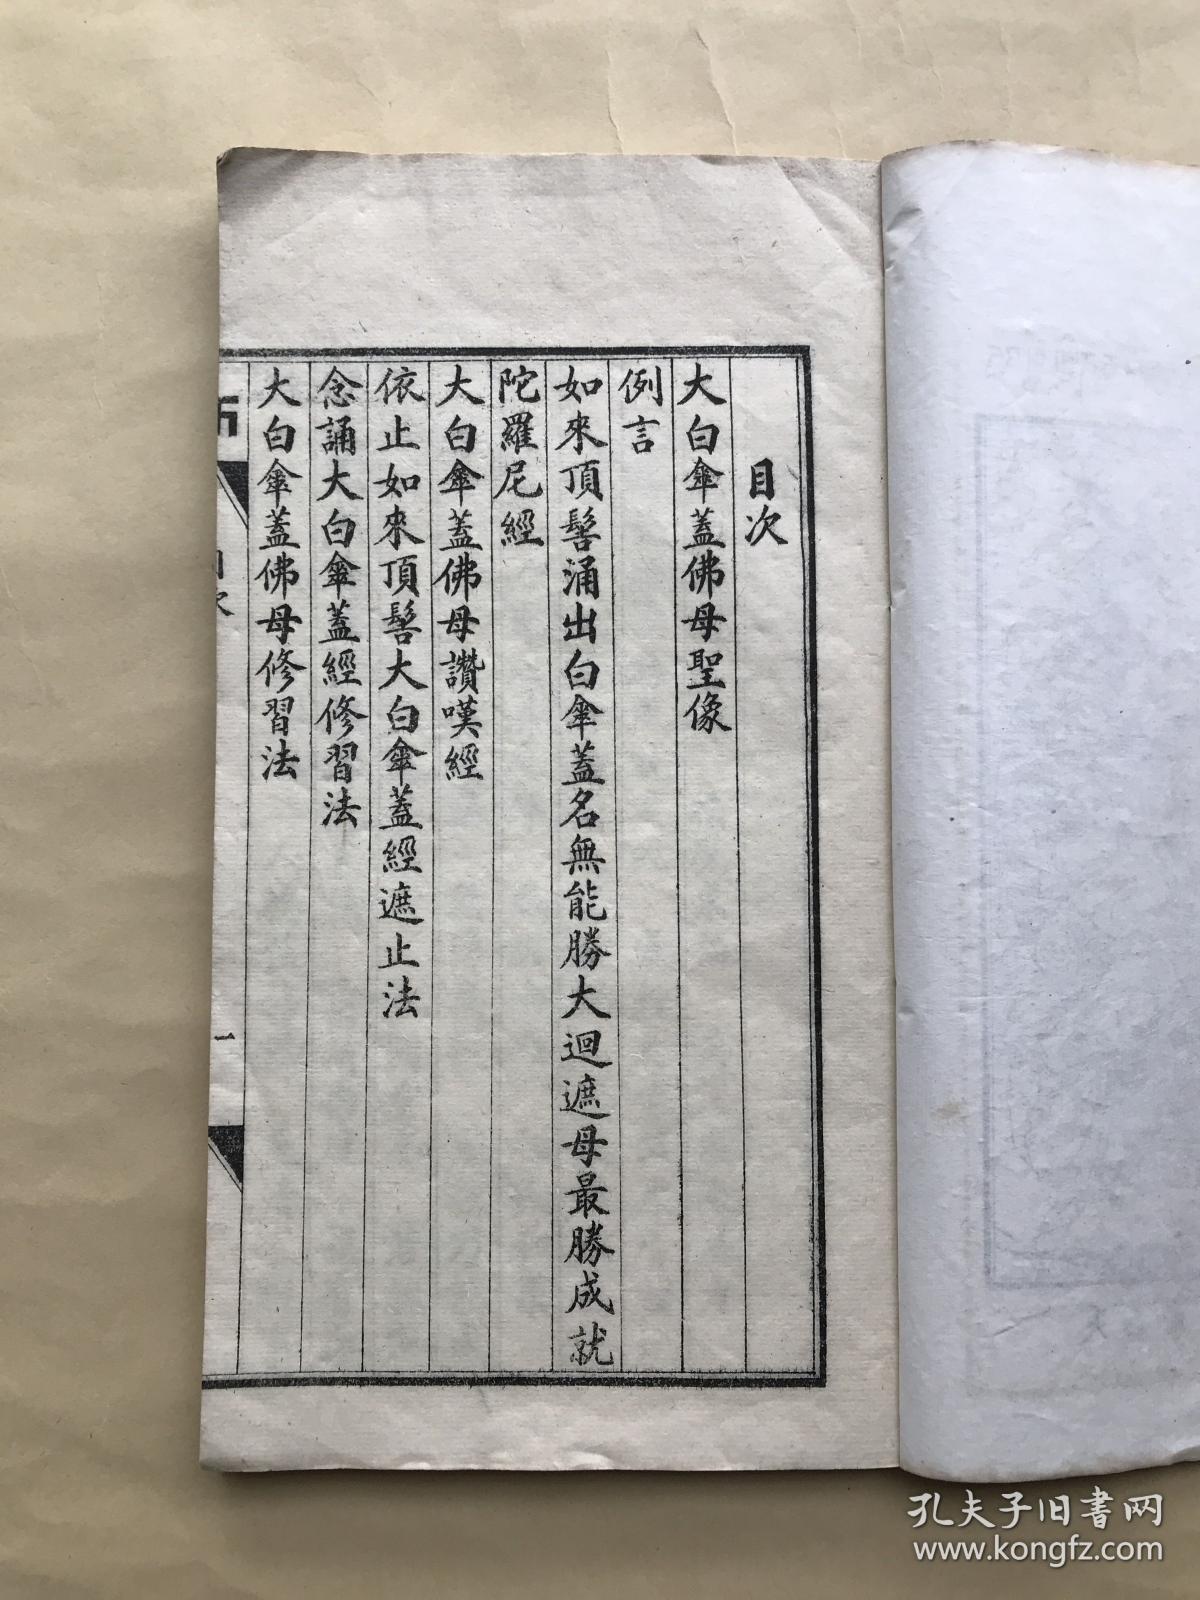 目次
大白傘蓋佛母聖像
例言
如來頂髻涌出白傘蓋名無能勝大迴遮母最勝成就
陀羅尼經
大白傘蓋佛母讚嘆經
依止如來頂髻大白傘蓋經遮止法
念誦大白傘蓋經修習法
大白傘蓋佛母修習法
一
孔夫子旧书网
www.kongfz.com